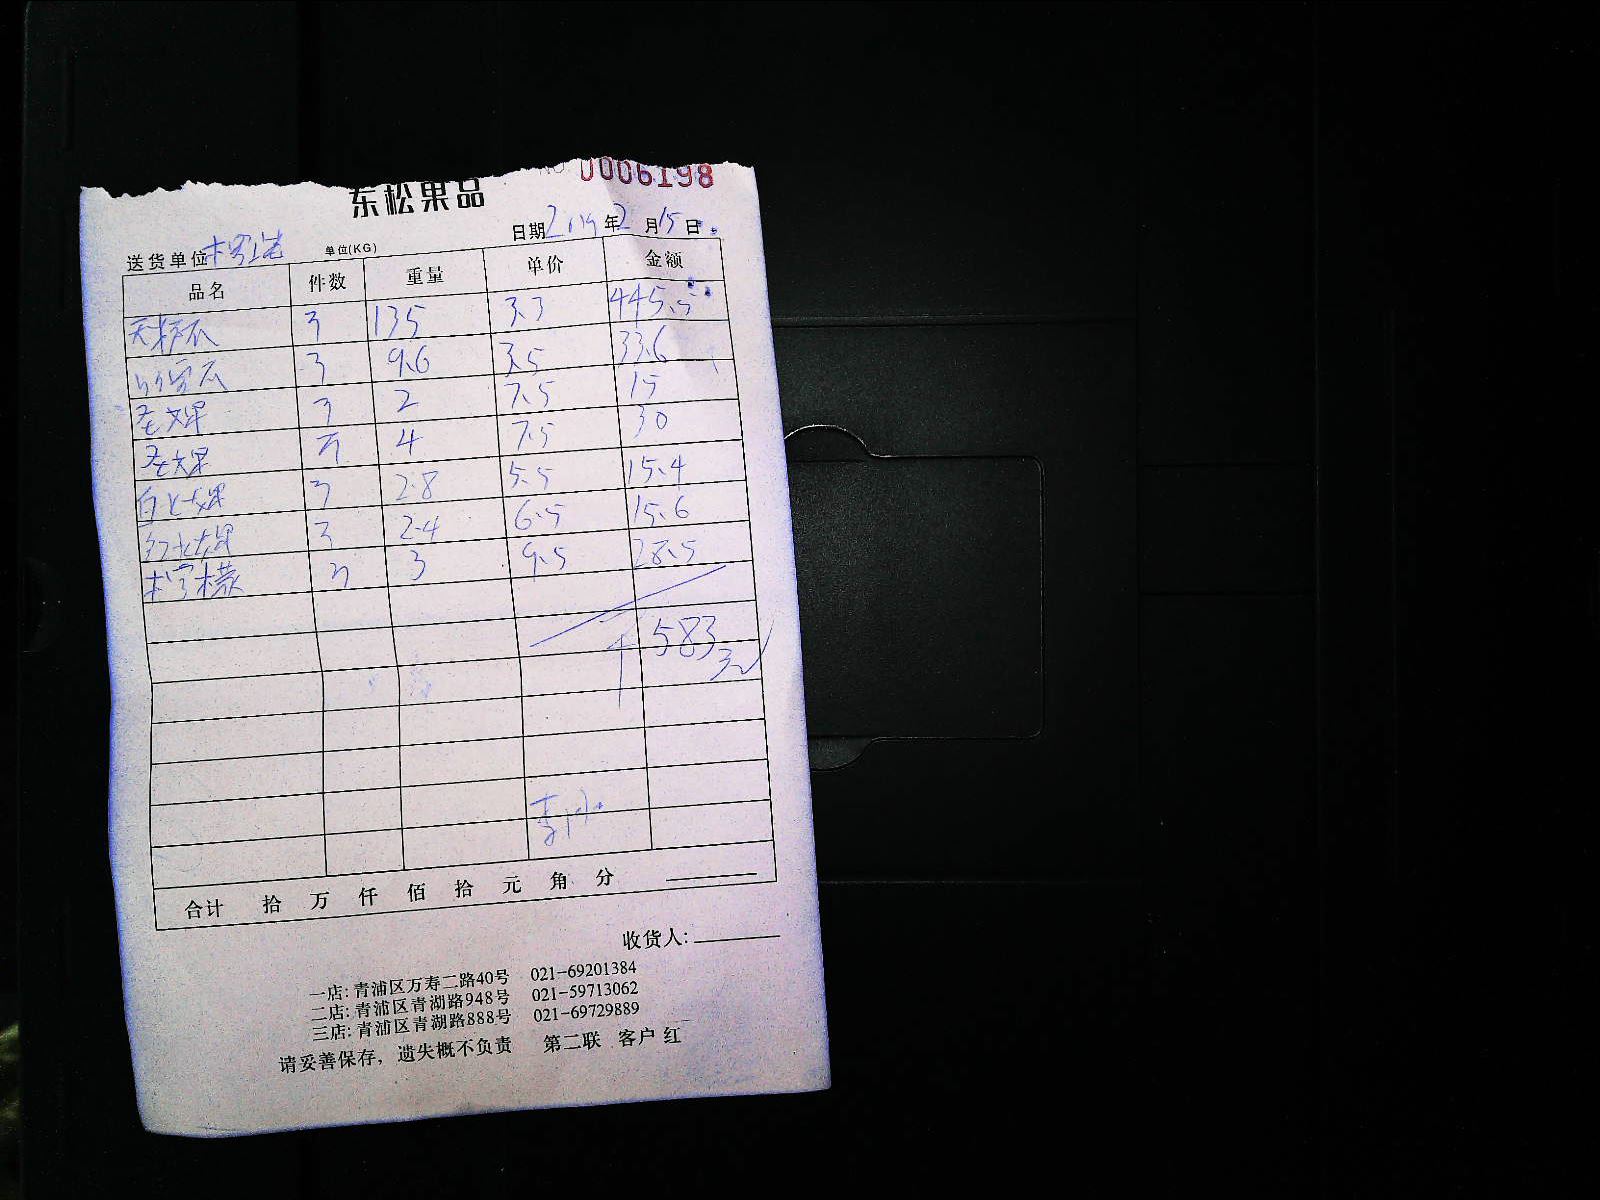 0006198
东松果品
日期 2019年2月15日
送货单位 单位(KG)
品名 件数 重量 单价 金额
3 135 3.3 445.5
3 9.6 3.5 33.6
圣女果 3 2 7.5 15
圣女果 3 4 7.5 30
3 2.8 5.5 15.4
3 2.4 6.5 15.6
柠檬 3 3 9.5 28.5
583元
合计 拾 万 仟 佰 拾 元 角 分
收货人:
一店: 青浦区万寿二路40号 021-69201384
二店: 青浦区青湖路948号 021-59713062
三店: 青浦区青湖路888号 021-69729889
请妥善保存，遗失概不负责 第二联 客户 红